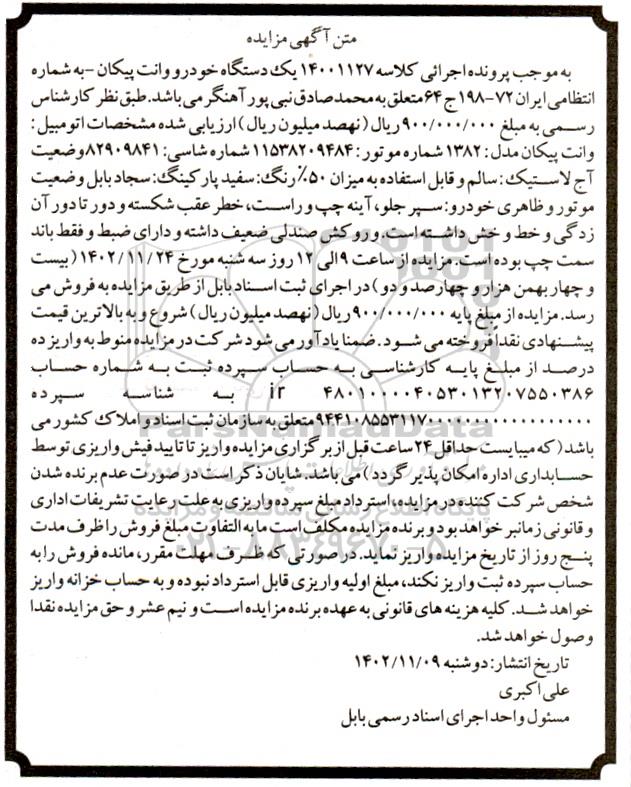 متن آگهی مزایده
به موجب پرونده اجرائی کلاسه ۱۴۰۰۱۱۲۷ یک دستگاه خودرو وانت پیکان -به شماره
انتظامی ایران ۷۲-۱۹۸ج۶۴متعلق به محمدصادق نبی پور آهنگر می باشد. طبق نظر کارشناس
رسمی به مبلغ ۹۰۰/۰۰۰/۰۰۰ریال (نهصد میلیون ریال) ارزیابی شده مشخصات اتومبیل:
وانت پیکان مدل: ۱۳۸۲ شماره موتور: ۱۱۵۳۸۲۰۹۴۸۴ شماره شاسی: ۸۲۹۰۹۸۴۱وضعیت
آج لاستیک: سالم و قابل استفاده به میزان ۵۰٪ رنگ: سفید پارکینگ: سجاد بابل وضعیت
موتور و ظاهری خودرو: سپر جلو، آینه چپ و راست، خطر عقب شکسته و دور تا دور آن
زدگی و خط و خش داشته است. و روکش صندلی ضعیف داشته و دارای ضبط و فقط باند
سمت چپ بوده است. مزایده از ساعت ۹ الی ۱۲ روز سه شنبه مورخ ۱۴۰۲/۱۱/۲۴ (بیست
و چهار بهمن هزار و چهارصد و دو) در اجرای ثبت اسناد بابل از طریق مزایده به فروش می
رسد. مزایده از مبلغ پایه ۹۰۰/۰۰۰/۰۰۰ریال (نهصد میلیون ریال) شروع و به بالاترین قیمت
پیشنهادی نقدا فروخته می شود. ضمنا یادآور می شود شرکت در مزایده منوط به واریز ده
درصد از مبلغ پایه کارشناسی به حساب سپرده ثبت به شماره حساب
ir ۴۸۰۱۰۰۰۰۴۰۵۳۰۱۳۲۰۷۵۵۰۳۸۶ به شناسه سپرده
متعلق به سازمان ثبت اسناد و املاک کشور می
باشد( که میبایست حداقل ۲۴ ساعت قبل از برگزاری مزایده واریز تا تایید فیش واریزی توسط
حسابداری اداره امکان پذیر گردد) می باشد. شایان ذکر است در صورت عدم برنده شدن
شخص شرکت کننده در مزایده، استرداد مبلغ سپرده واریزی به علت رعایت تشریفات اداری
و قانونی زمانبر خواهد بود و برنده مزایده مکلف است ما به التفاوت مبلغ فروش را ظرف مدت
پنج روز از تاریخ مزایده واریز نماید. در صورتی که ظرف مهلت مقرر، مانده فروش را به
حساب سپرده ثبت واریز نکند، مبلغ اولیه واریزی قابل استرداد نبوده و به حساب خزانه واریز
خواهد شد. کلیه هزینه های قانونی به عهده برنده مزایده است و نیم عشر و حق مزایده نقدا
وصول خواهد شد.
تاریخ انتشار: دوشنبه ۱۴۰۲/۱۱/۰۹
علی اکبری
مسئول واحد اجرای اسناد رسمی بابل